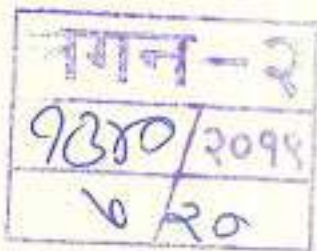 - २
१३४० / २०१९
७ / २०